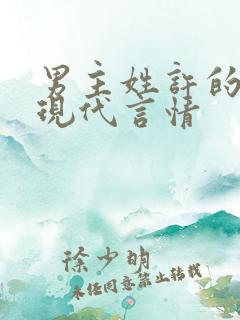 男主姓許的
現代言情
徐少明
未经同意禁止转载